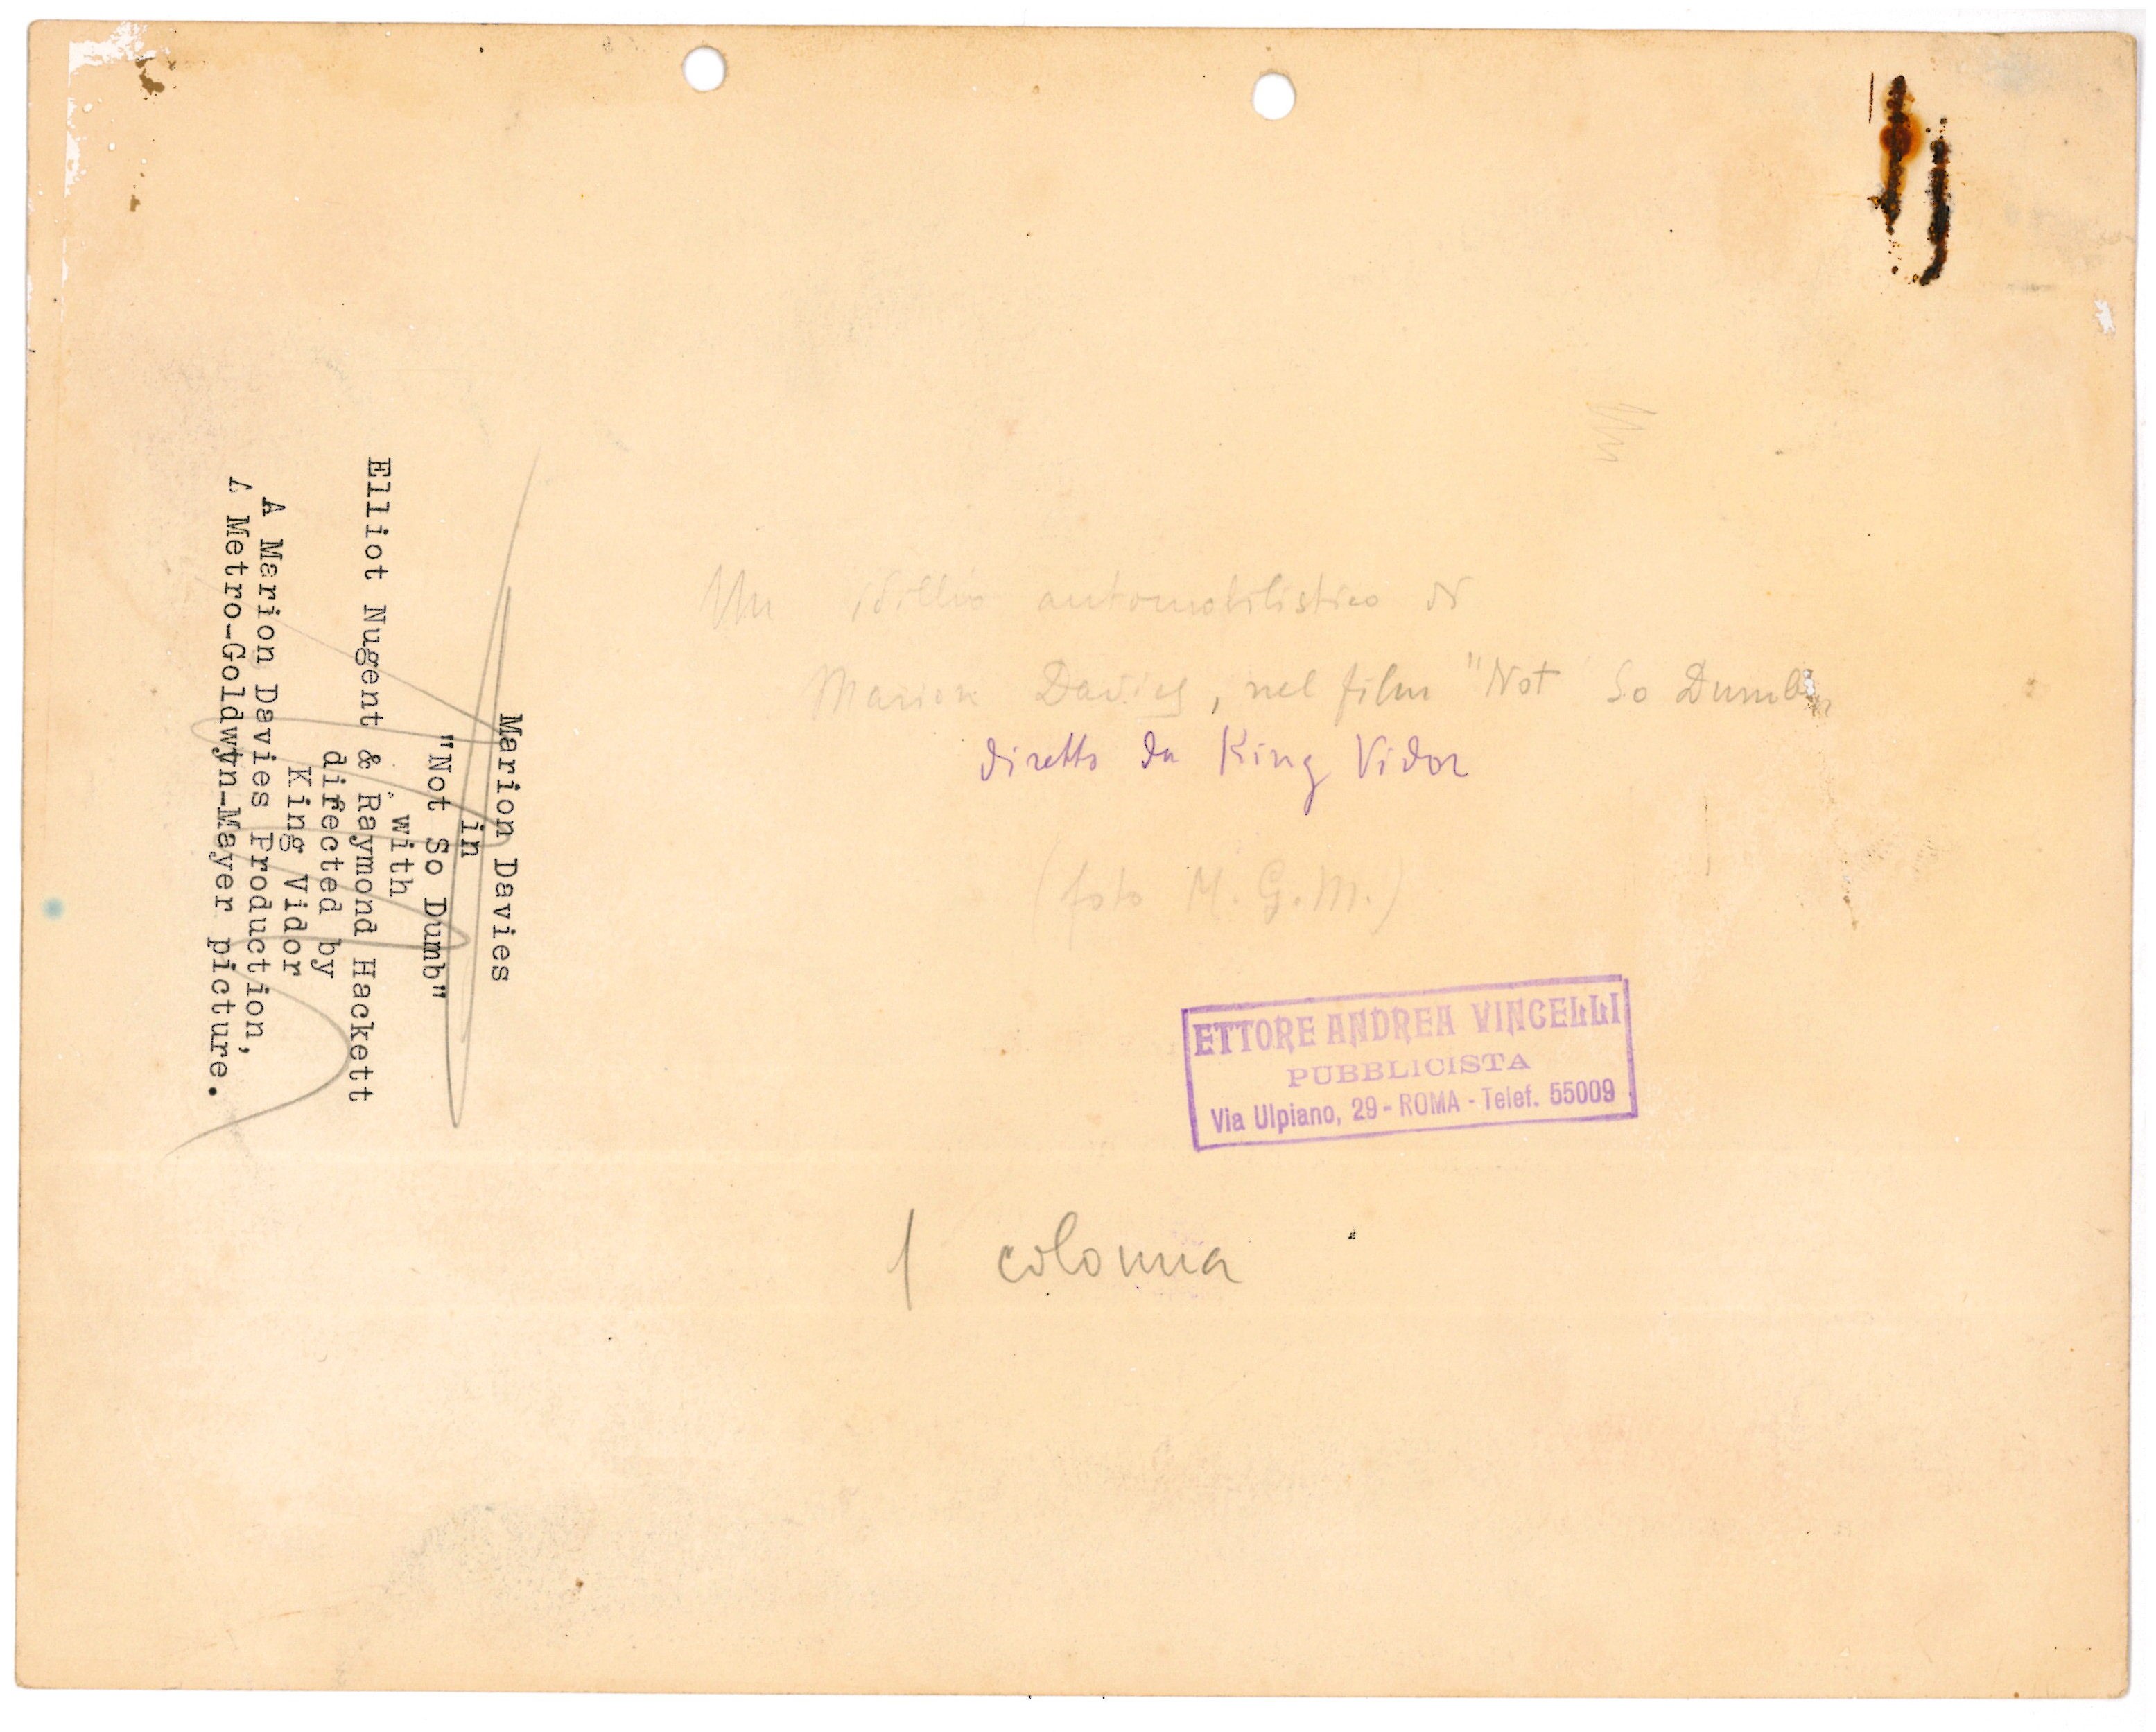 Marion Davies
in
"Not So Dumb"
with
Elliot Nugent & Raymond Hackett
directed by
King Vidor
A Marion Davies Production,
A Metro-Goldwyn-Mayer picture.
Un idillio automobilistico di
Marion Davies, nel film "Not So Dumb"
diretto da King Vidor
(foto M.G.M.)
ETTORE ANDREA VINCELLI
PUBBLICISTA
Via Ulpiano, 29 - ROMA - Telef. 55009
1 colonna